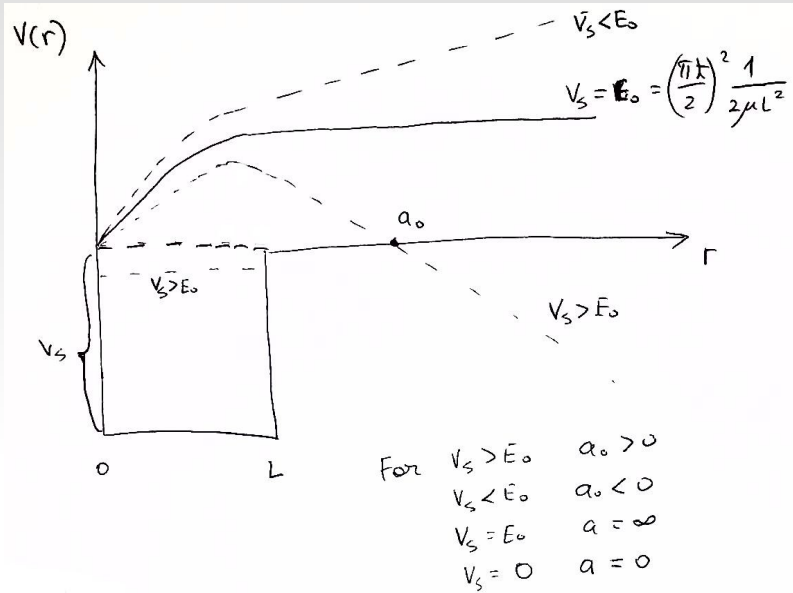 V(r)
V_s < E_0
V_s = E_0 = (πħ/2)² 1/(2μL²)
a_0
r
V_s > E_0
V_s > E_0
V_s
0
L
For V_s > E_0 a_0 > 0
V_s < E_0 a_0 < 0
V_s = E_0 a = ∞
V_s = 0 a = 0